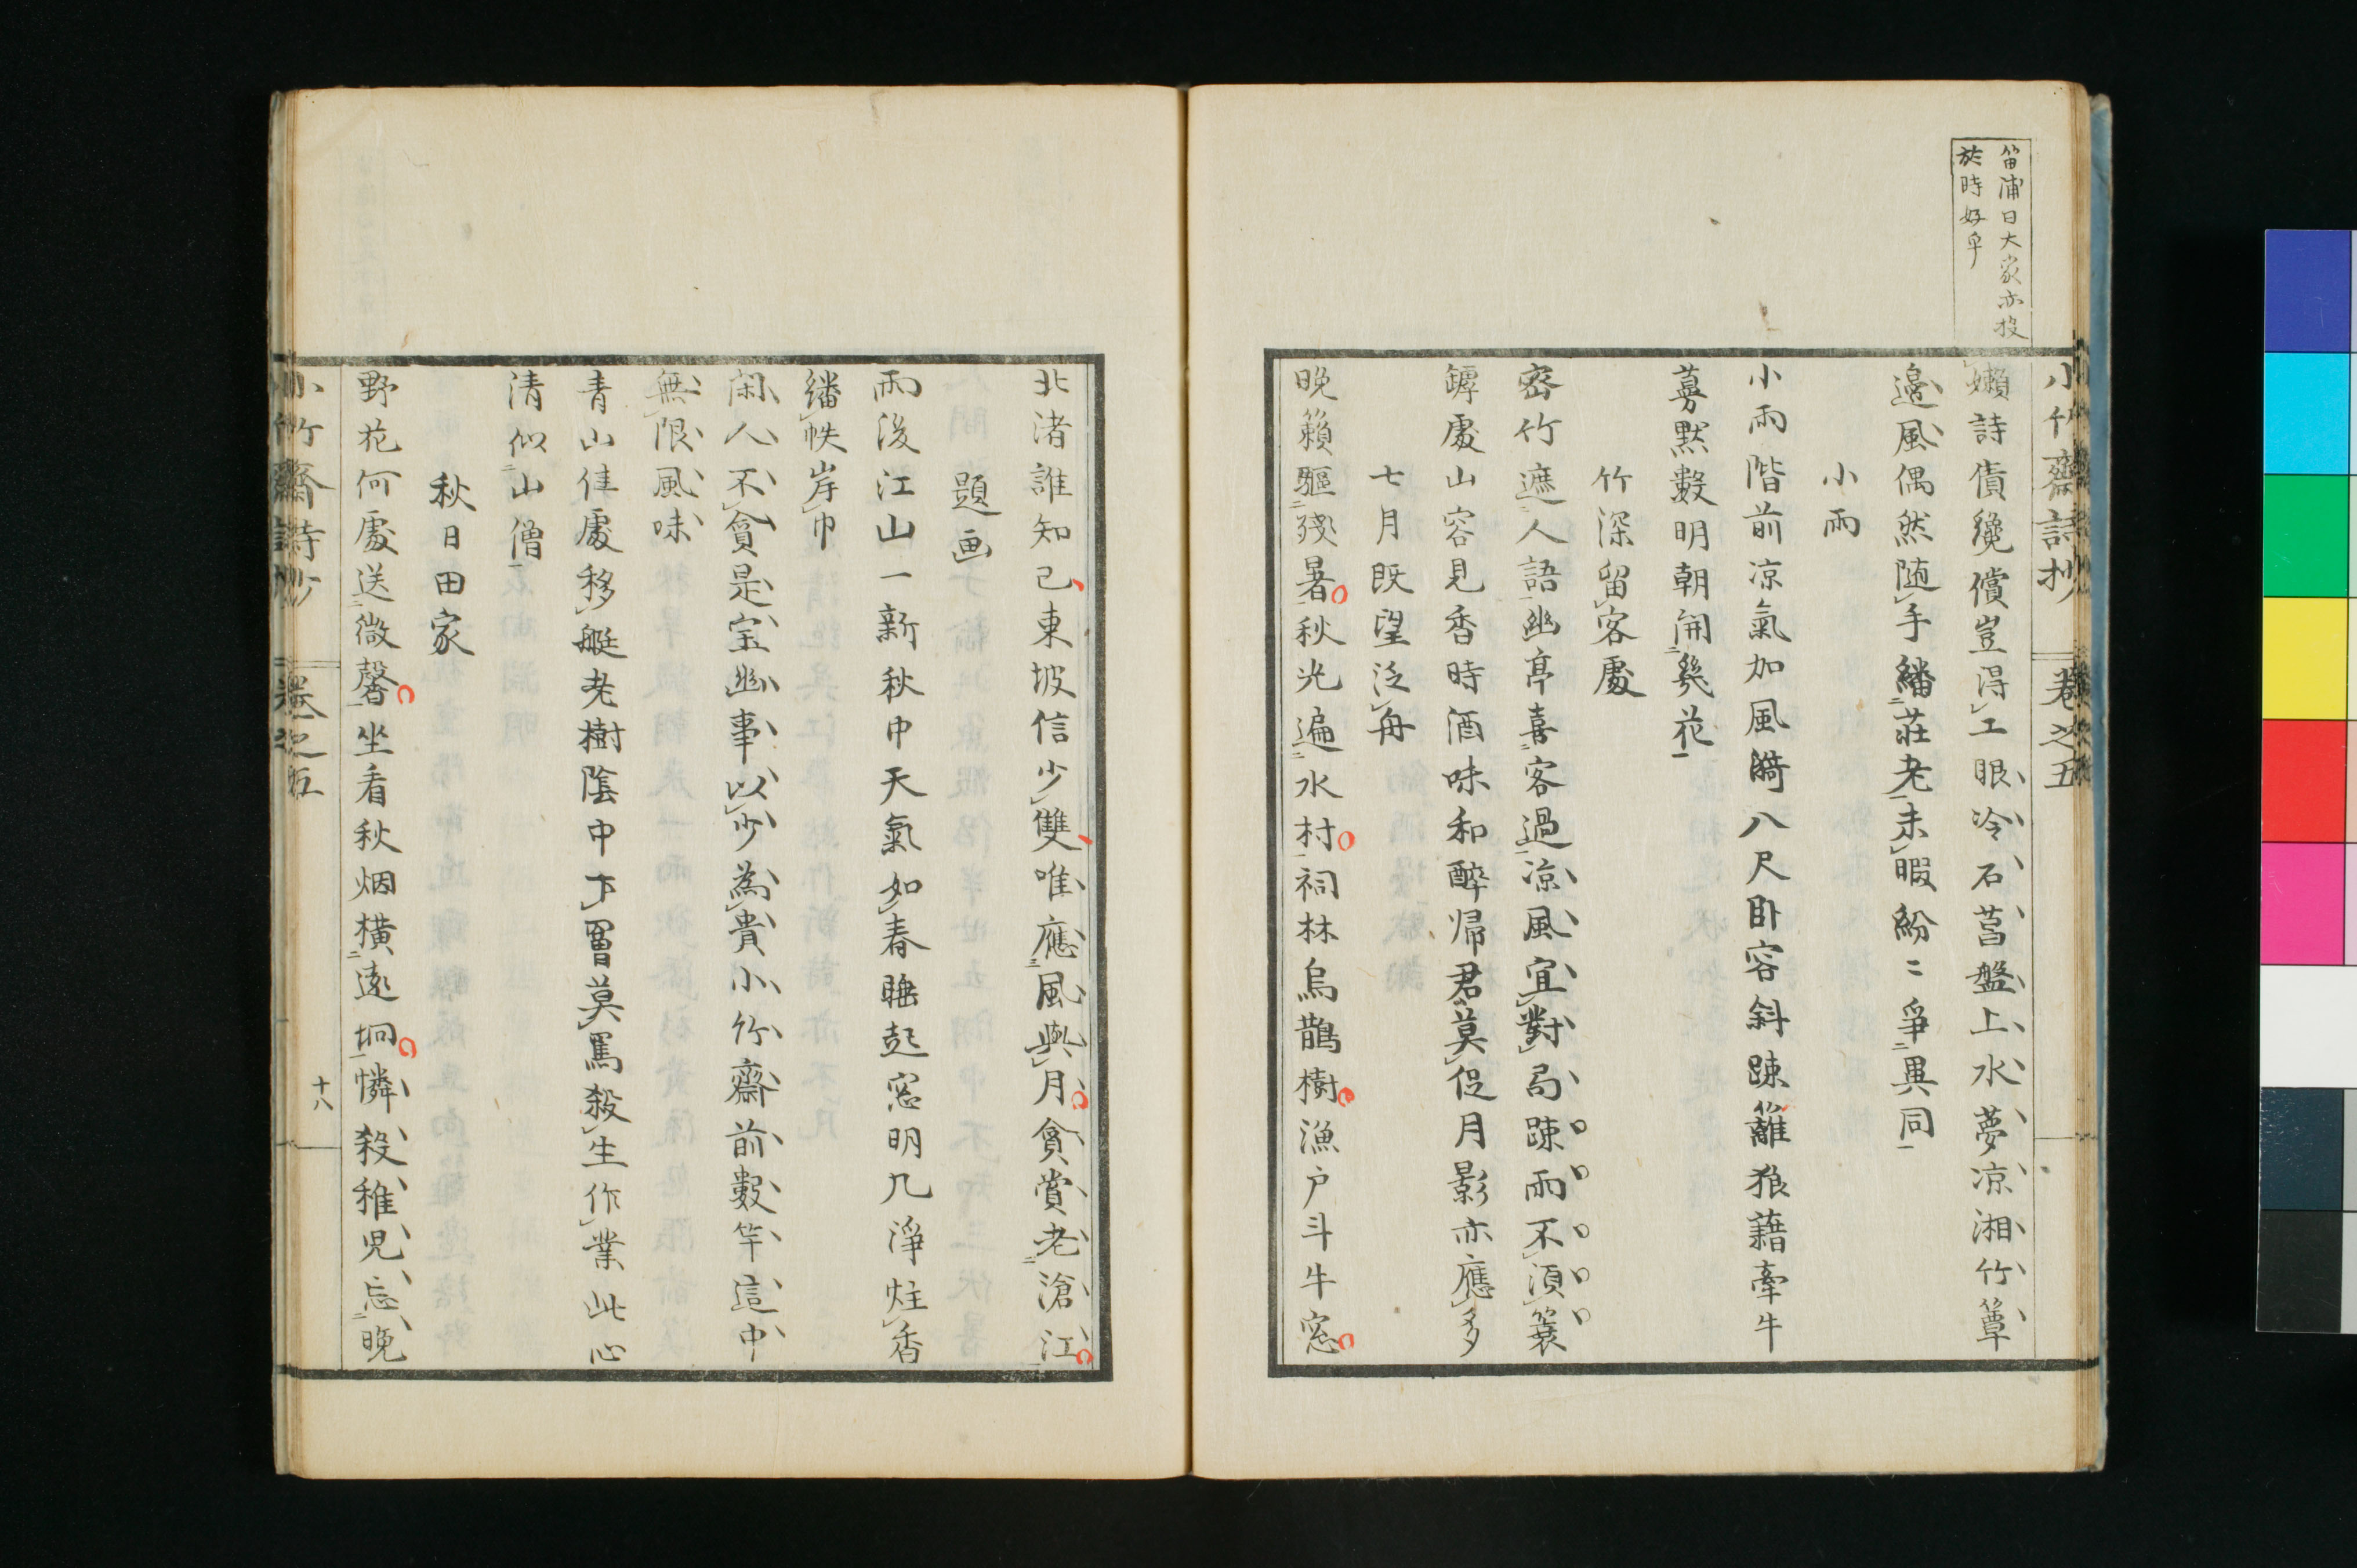 笛浦曰大家亦投
於時好乎
小竹齋詩抄 卷之五
嬾詩債纔償豈得工眼冷石菖盤上水夢凉湘竹簟
邊風偶然随手繙莊老未暇紛〻爭異同
小雨
小雨階前凉氣加風漪八尺卧容斜踈籬狼藉牽牛
蔓默數明朝開幾花
竹深留客處
密竹遮人語幽亭喜客過凉風宜對局踈雨不須簑
罅處山容見香時酒味和醉帰君莫促月影亦應多
七月既望泛舟
晚籟驅殘暑秋光遍水村祠林烏鵲樹漁戸斗牛窓
北渚誰知己東坡信少雙唯應風與月貪賞老滄江
題画
雨後江山一新秋中天氣如春睡起窓明几淨炷香
繙帙岸巾
閑人不貪是宝幽事以少為貴小竹齋前數竿這中
無限風味
青山佳處移艇老樹陰中下罾莫罵殺生作業此心
清似山僧
秋日田家
野花何處送微馨坐看秋烟横遠坰憐殺稚児忘晚
小竹齋詩抄 卷之五
十八